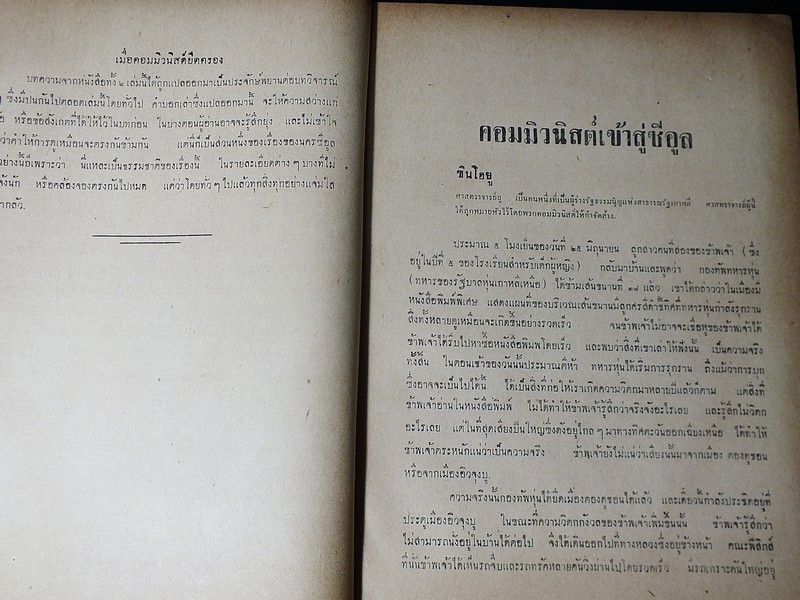 เมื่อคอมมิวนิสต์ยึดครอง
บทความจากหนังสือทั้ง ๒ เล่มนี้ได้ถูกแปลออกมาเป็นประจักษ์พยานต่อบทวิจารณ์
ซึ่งมีปนกันไปตลอดเล่มนี้โดยทั่วไป คำบอกเล่าซึ่งแปลออกมานี้ จะให้ความสว่างแก่
หรือข้อสังเกตที่ได้ให้ไว้ในบทก่อน ในบางตอนผู้อ่านอาจจะรู้สึกยุ่ง และไม่เข้าใจ
ว่าคำให้การดูเหมือนจะตรงกันข้ามกัน แต่นี่ก็เป็นส่วนหนึ่งของเรื่องของนครซีอูล
อย่างนี้ก็เพราะว่า นี่แหละเป็นธรรมชาติของเรื่องนี้ ในรายละเอียดต่าง ๆ บางทีไม่
นัก หรือคล้องจองตรงกันไปหมด แต่ว่าโดยทั่ว ๆ ไปแล้วทุกสิ่งทุกอย่างแจ่มใส
คอมมิวนิสต์เข้าสู่ซีอูล
ชินโอยู
ศาสตราจารย์ยู เป็นคนหนึ่งที่เป็นผู้ร่างรัฐธรรมนูญแห่งสาธารณรัฐเกาหลี ศาสตราจารย์ผู้นี้
ได้ถูกหมายหัวไว้โดยพวกคอมมิวนิสต์ให้กำจัดล้าง.
ประมาณ ๕ โมงเย็นของวันที่ ๒๕ มิถุนายน ลูกสาวคนที่สองของข้าพเจ้า (ซึ่ง
อยู่ในปีที่ ๕ ของโรงเรียนสำหรับเด็กผู้หญิง) กลับมาบ้านและพูดว่า กองทัพทหารหุ่น
(ทหารของรัฐบาลหุ่นเกาหลีเหนือ) ได้ข้ามเส้นขนานที่ ๓๘ แล้ว เขาได้กล่าวว่าในเมืองมี
หนังสือพิมพ์พิเศษ แสดงแผนที่ของบริเวณเส้นขนานมีลูกศรสีดำชี้ทิศที่ทหารหุ่นกำลังรุกราน
สิ่งทั้งหลายดูเหมือนจะเกิดขึ้นอย่างรวดเร็ว จนข้าพเจ้าไม่อาจจะเชื่อหูของข้าพเจ้าได้
ข้าพเจ้าได้รีบไปหาซื้อหนังสือพิมพ์โดยเร็ว และพบว่าสิ่งที่เขาเล่าให้ฟังนั้น เป็นความจริง
ทั้งสิ้น ในตอนเช้าของวันนั้นประมาณตีห้า ทหารหุ่นได้เริ่มการรุกราน ถึงแม้ว่าการบุก
ซึ่งอาจจะเป็นไปได้นี้ ได้เป็นสิ่งที่ก่อให้เราเกิดความวิตกมาหลายปีแล้วก็ตาม แต่สิ่งที่
ข้าพเจ้าอ่านในหนังสือพิมพ์ ไม่ได้ทำให้ข้าพเจ้ารู้สึกว่าจริงจังอะไรเลย และรู้สึกไม่วิตก
อะไรเลย แต่ในที่สุดเสียงปืนใหญ่ซึ่งดังอยู่ไกล ๆ มาทางทิศตะวันออกเฉียงเหนือ ได้ทำให้
ข้าพเจ้าตระหนักแน่ว่าเป็นความจริง ข้าพเจ้ายังไม่แน่ว่าเสียงนั้นมาจากเมือง ตองดูชอน
หรือจากเมืองอิวจุงบู.
ความจริงนั้นกองทัพหุ่นได้ยึดเมืองตองดูชอนได้แล้ว และเดี๋ยวนี้กำลังประชิดอยู่ที่
ประตูเมืองอิวจุงบู ในขณะที่ความวิตกกังวลของข้าพเจ้าเพิ่มขึ้นนั้น ข้าพเจ้ารู้สึกว่า
ไม่สามารถนั่งอยู่ในบ้านได้ต่อไป จึงได้เดินออกไปที่ทางหลวงซึ่งอยู่ข้างหน้า คณะฟิสิกส์
ที่นั่นข้าพเจ้าได้เห็นรถจี๊บและรถทรัคหลายคันวิ่งผ่านไปโดยรวดเร็ว มีรถเกราะคันใหญ่อยู่